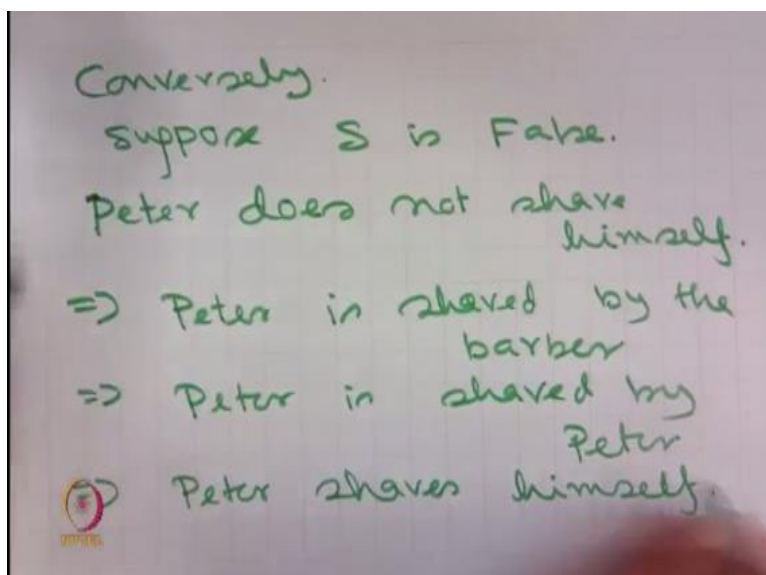 Conversely.
suppose S is False.
Peter does not shave
himself.
=> Peter is shaved by the
barber
=> Peter is shaved by
Peter
=> Peter shaves himself.
NPTEL